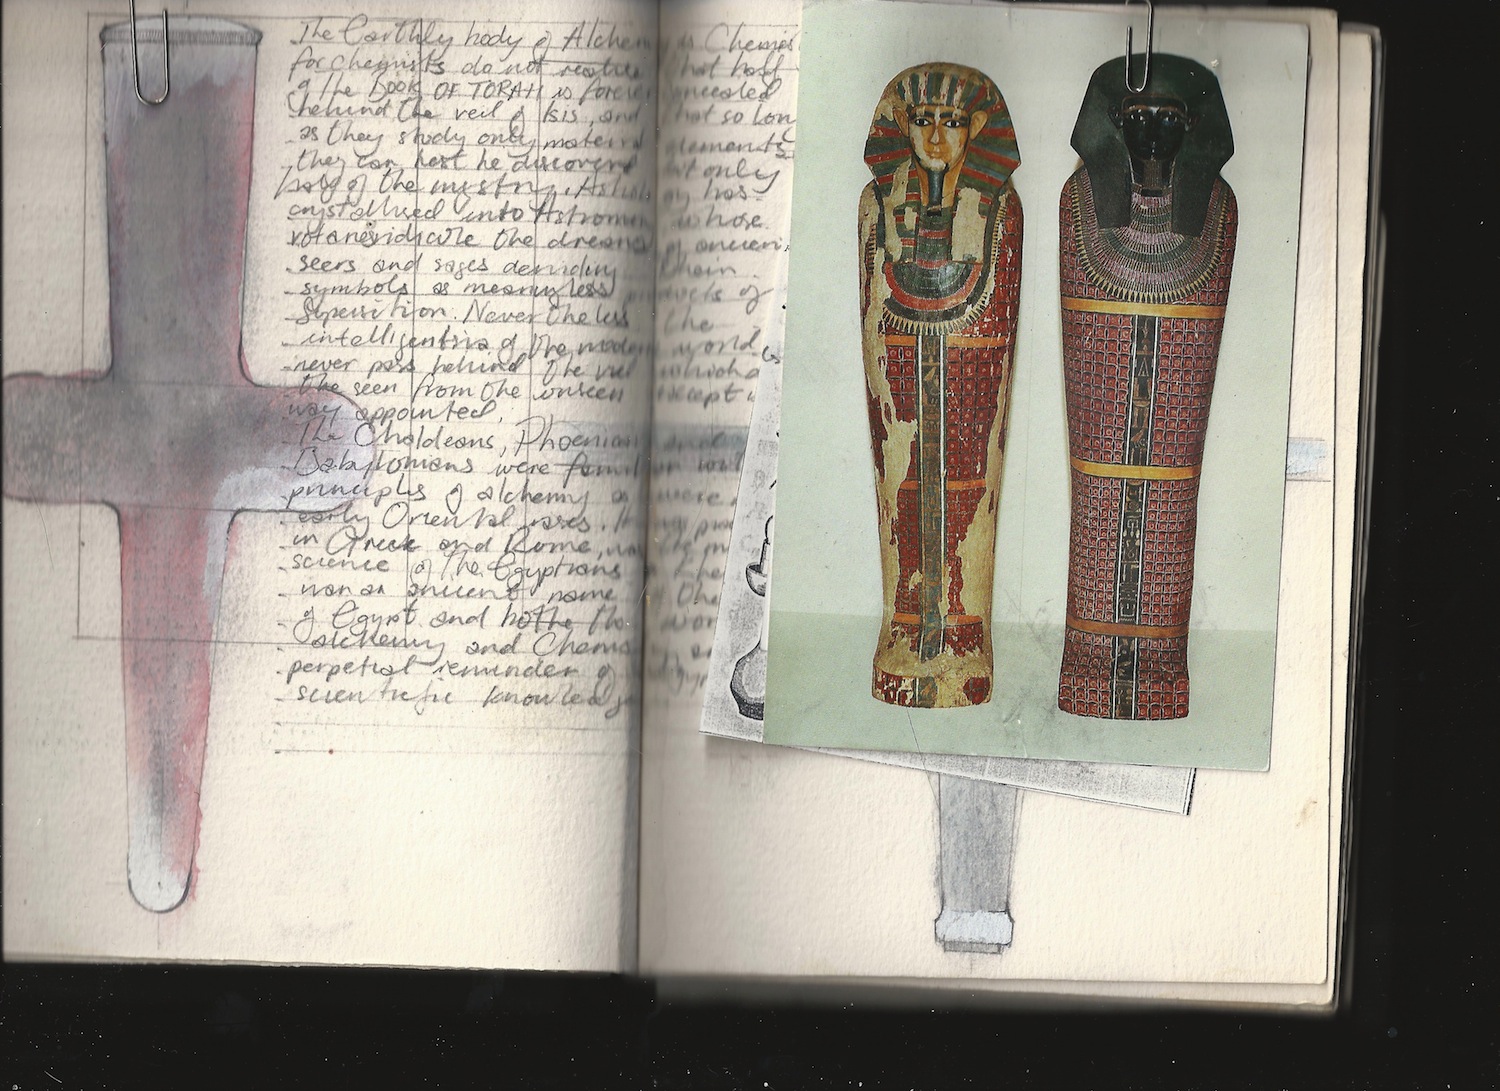 The Earthly body of Alchemy is Chemis
for chemists do not realise that half
of the BOOK OF TORAH is forever concealed
behind the veil of Isis, and that so lon
as they study only material elements
they can best be discovered but only
part of the mystery. Astrology has
crystallised into Astronomy whose
ridicule the dreams of ancien
seers and sages deriding their
symbols as meaningless products of
Supersition. Nevertheless the
intelligentsia of the modern world
never pass behind the veil which d
the seen from the unseen except
way appointed.
The Chaldeans, Phoenicians and
Babylonians were familiar with
principles of alchemy as were
early Oriental races. It was
in Greece and Rome, was the
science of the Egyptians. Khe
was an ancient name of the
of Egypt and both the wor
alchemy and Chemis
perpetual reminder of
scientific knowledg